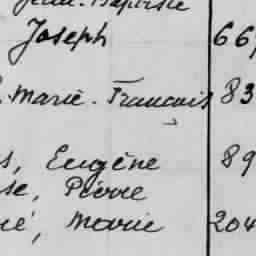 Jean-Baptiste
Joseph 66
Marie-Francois 83
s, Eugène 89
se, Pierre
é, Marie 204